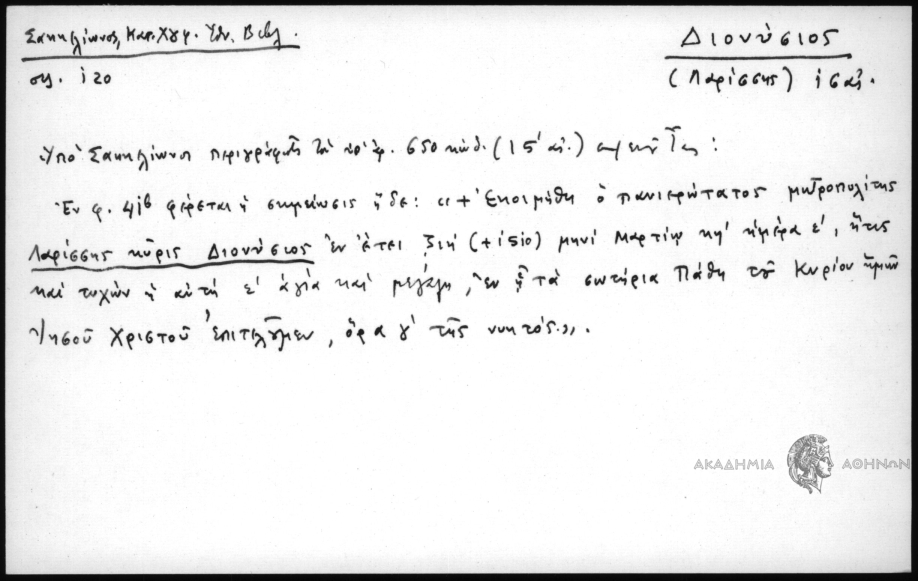 Σακκελίωνος, Κατ. Χγφ. Ἐθν. Βιβλ.
σελ. 120
Διονύσιος
(Λαρίσσης) ις αἰ.
Ὑπὸ Σακκελίωνος περιγράφεται τὸ ὑπ' ἀρ. 650 κώδ. (15' αἰ.)
Ἐν φ. 41β φέρεται ἡ σημείωσις ἥδε: «+ Ἐκοιμήθη ὁ πανιερώτατος μητροπολίτης
Λαρίσσης κύρις Διονύσιος ἐν ἔτει ζιή (+1510) μηνὶ Μαρτίῳ κη' ἡμέρᾳ ε', ἥτις
καὶ τυχὼν ἡ αὐτὴ ε' ἁγία καὶ μεγάλη, ἐν ᾗ τὰ σωτήρια Πάθη τοῦ Κυρίου ἡμῶν
Ἰησοῦ Χριστοῦ ἐπιτελοῦμεν, ὅρα γ' τῆς νυκτός.».
ΑΚΑΔΗΜΙΑ ΑΘΗΝΩΝ